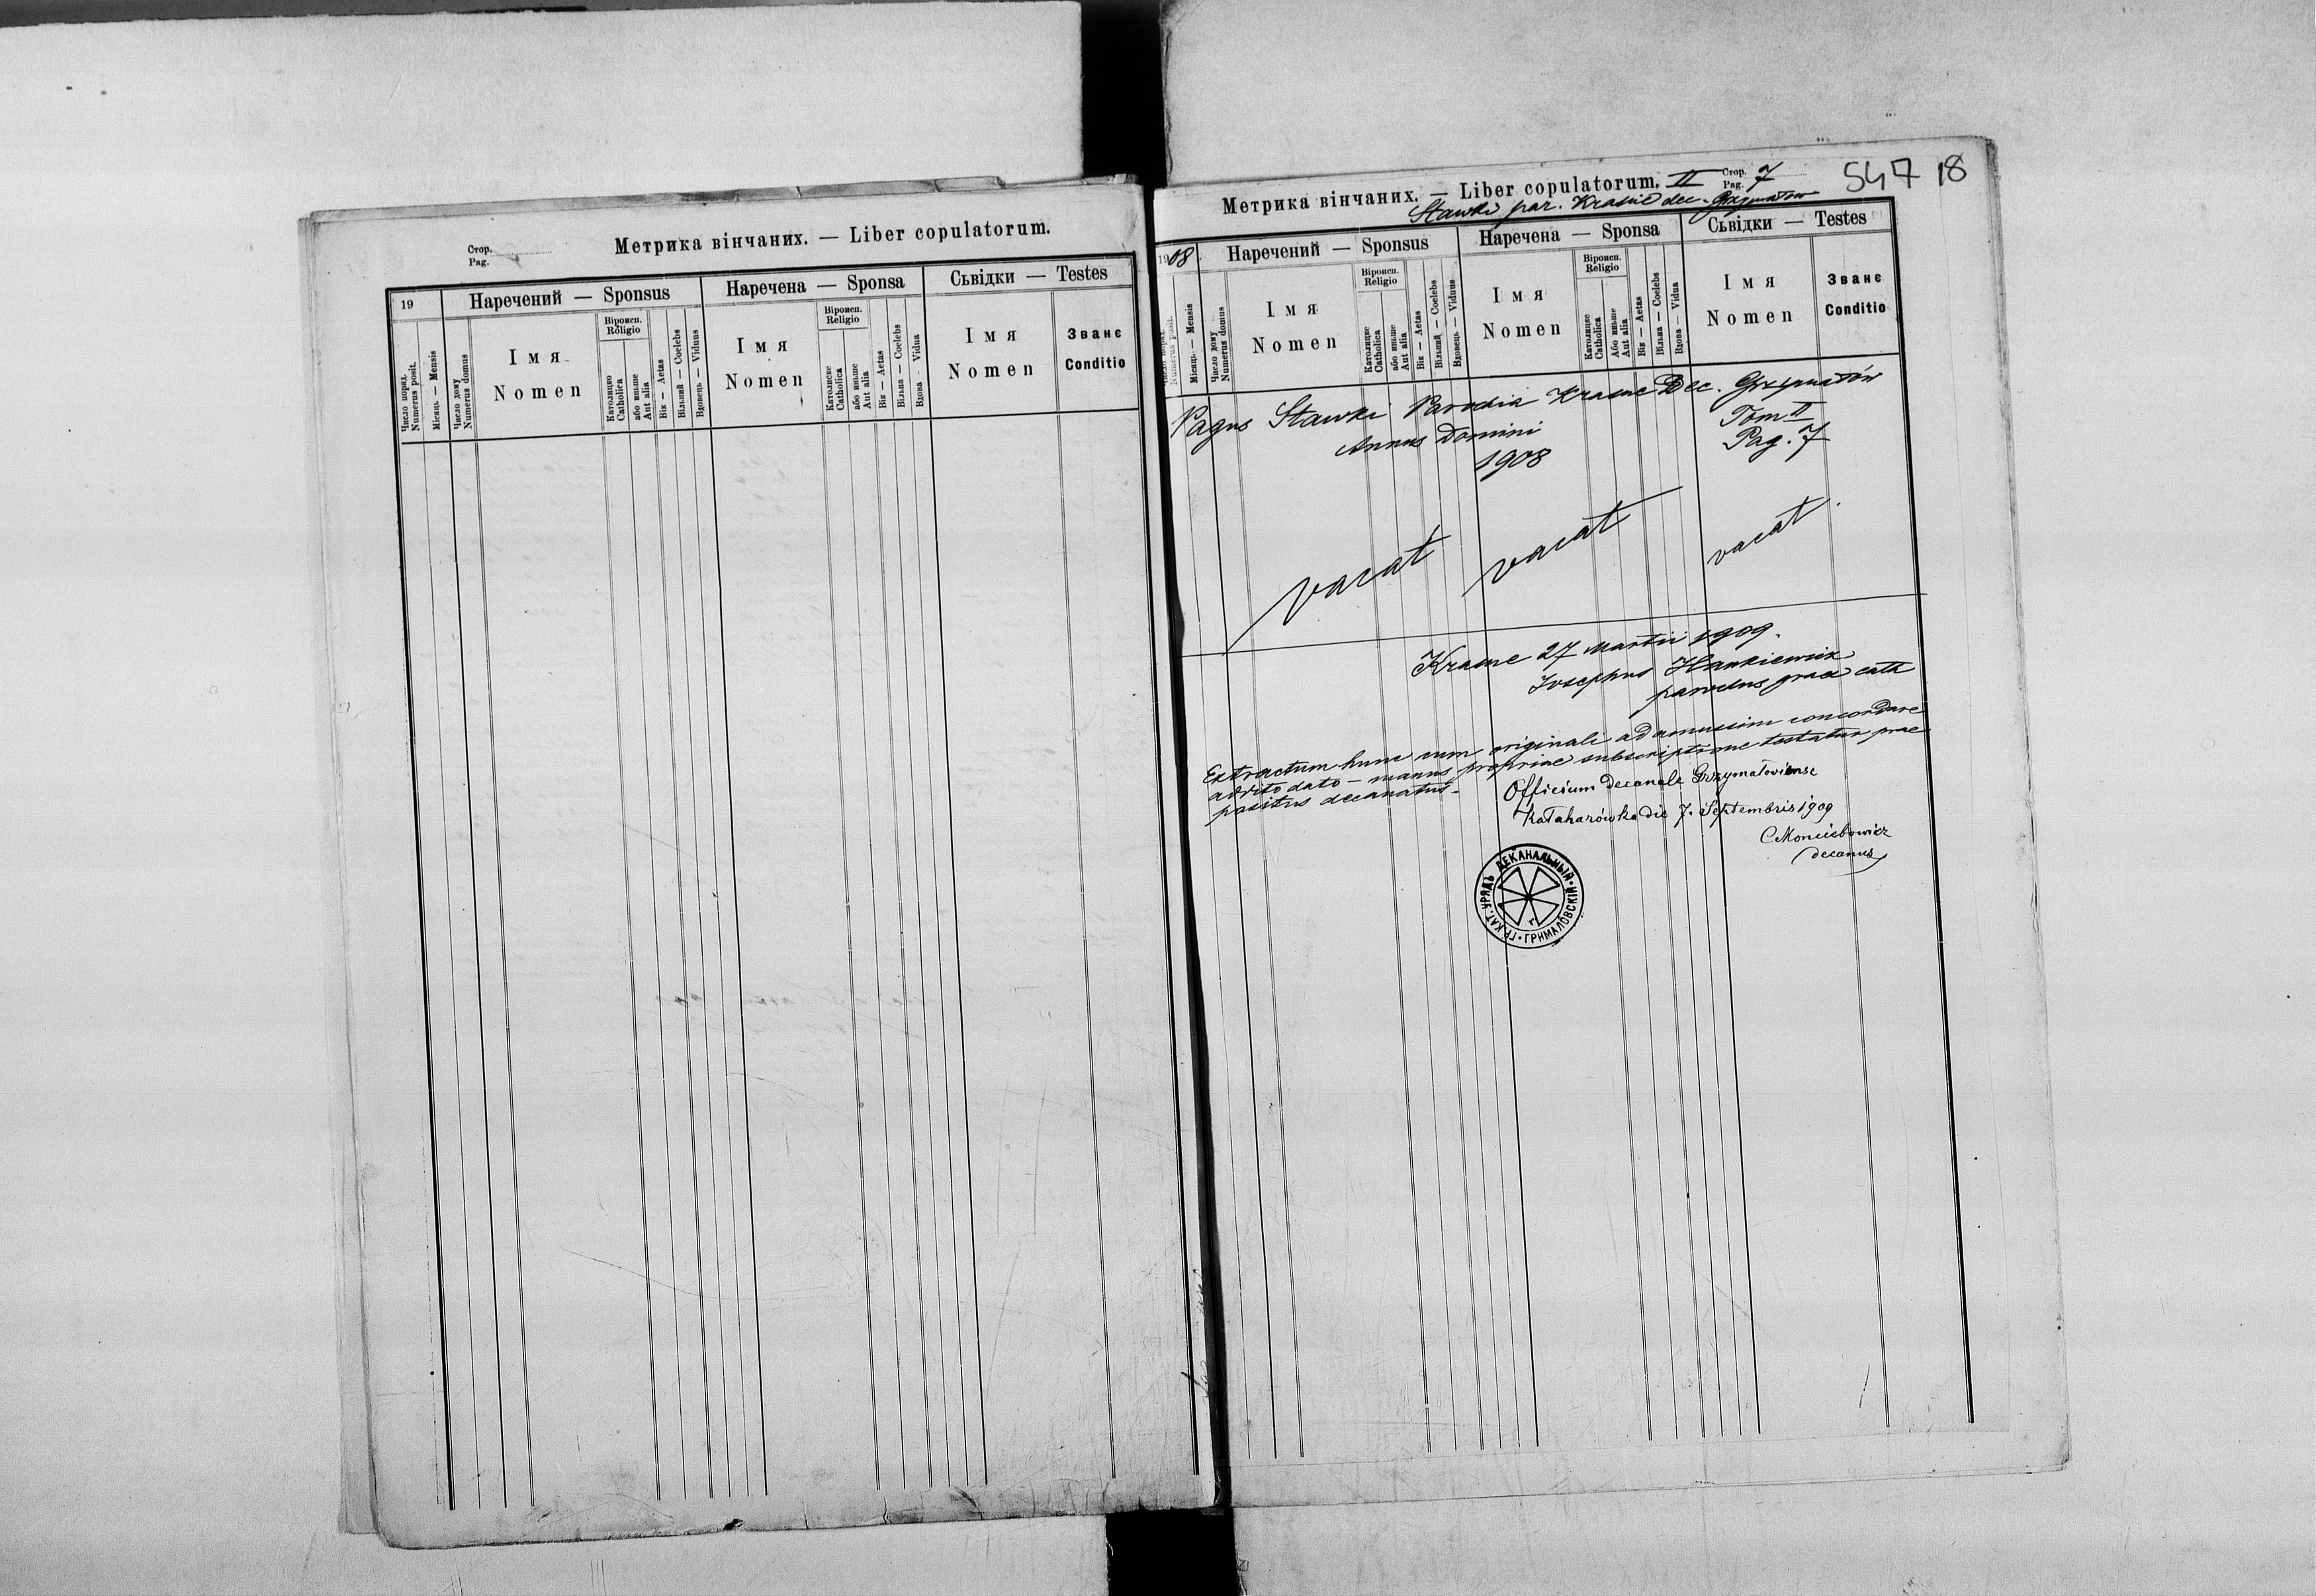 Стор.
Pag.
Метрика вінчаних. — Liber copulatorum.
19
Наречений — Sponsus
Наречена — Sponsa
Сьвідки — Testes
Число поряд.
Numerus posit.
Місяць — Mensis
Число дому
Numerus domus
Імя
Nomen
Віроисп.
Religio
Католицке
Catholica
або иньше
Aut alia
Вік — Aetas
Вільний — Coelebs
Вдовець — Viduus
Імя
Nomen
Віроисп.
Religio
Католицке
Catholica
або иньше
Aut alia
Вік — Aetas
Вільна — Coelebs
Вдова — Vidua
Імя
Nomen
Званє
Conditio
Метрика вінчаних. — Liber copulatorum. II Стор. Pag. 7
547 18
Stawki par. Krasne dec. Grzymałów
1908
Наречений — Sponsus
Наречена — Sponsa
Сьвідки — Testes
Numerus posit.
Місяць — Mensis
Число дому
Numerus domus
Імя
Nomen
Віроисп.
Religio
Католицке
Catholica
або иньше
Aut alia
Вік — Aetas
Вільний — Coelebs
Вдовець — Viduus
Імя
Nomen
Віроисп.
Religio
Католицке
Catholica
Або иньше
Aut alia
Вік — Aetas
Вільна — Coelebs
Вдова — Vidua
Імя
Nomen
Званє
Conditio
Pagus Stawki Parochia Krasne Dec. Grzymałów
Annus Domini
Tom II
1908
Pag. 7
vacat vacat vacat.
Krasne 27 Martii 1909.
Josephus Hankiewicz
parochus graeci cath
Extractum hunc cum originali adamussim concordare
adrito dato – manus propriae subscriptione testatur prae
positus decanatus.
Officium decanale Grzymałoviense
Kałaharówka die 7. Septembris 1909
Moncibowicz
decanus
ГР.КАТ. УРЯДЪ ДЕКАНАЛЬНЫЙ ГРИМАЛОВСКІЙ